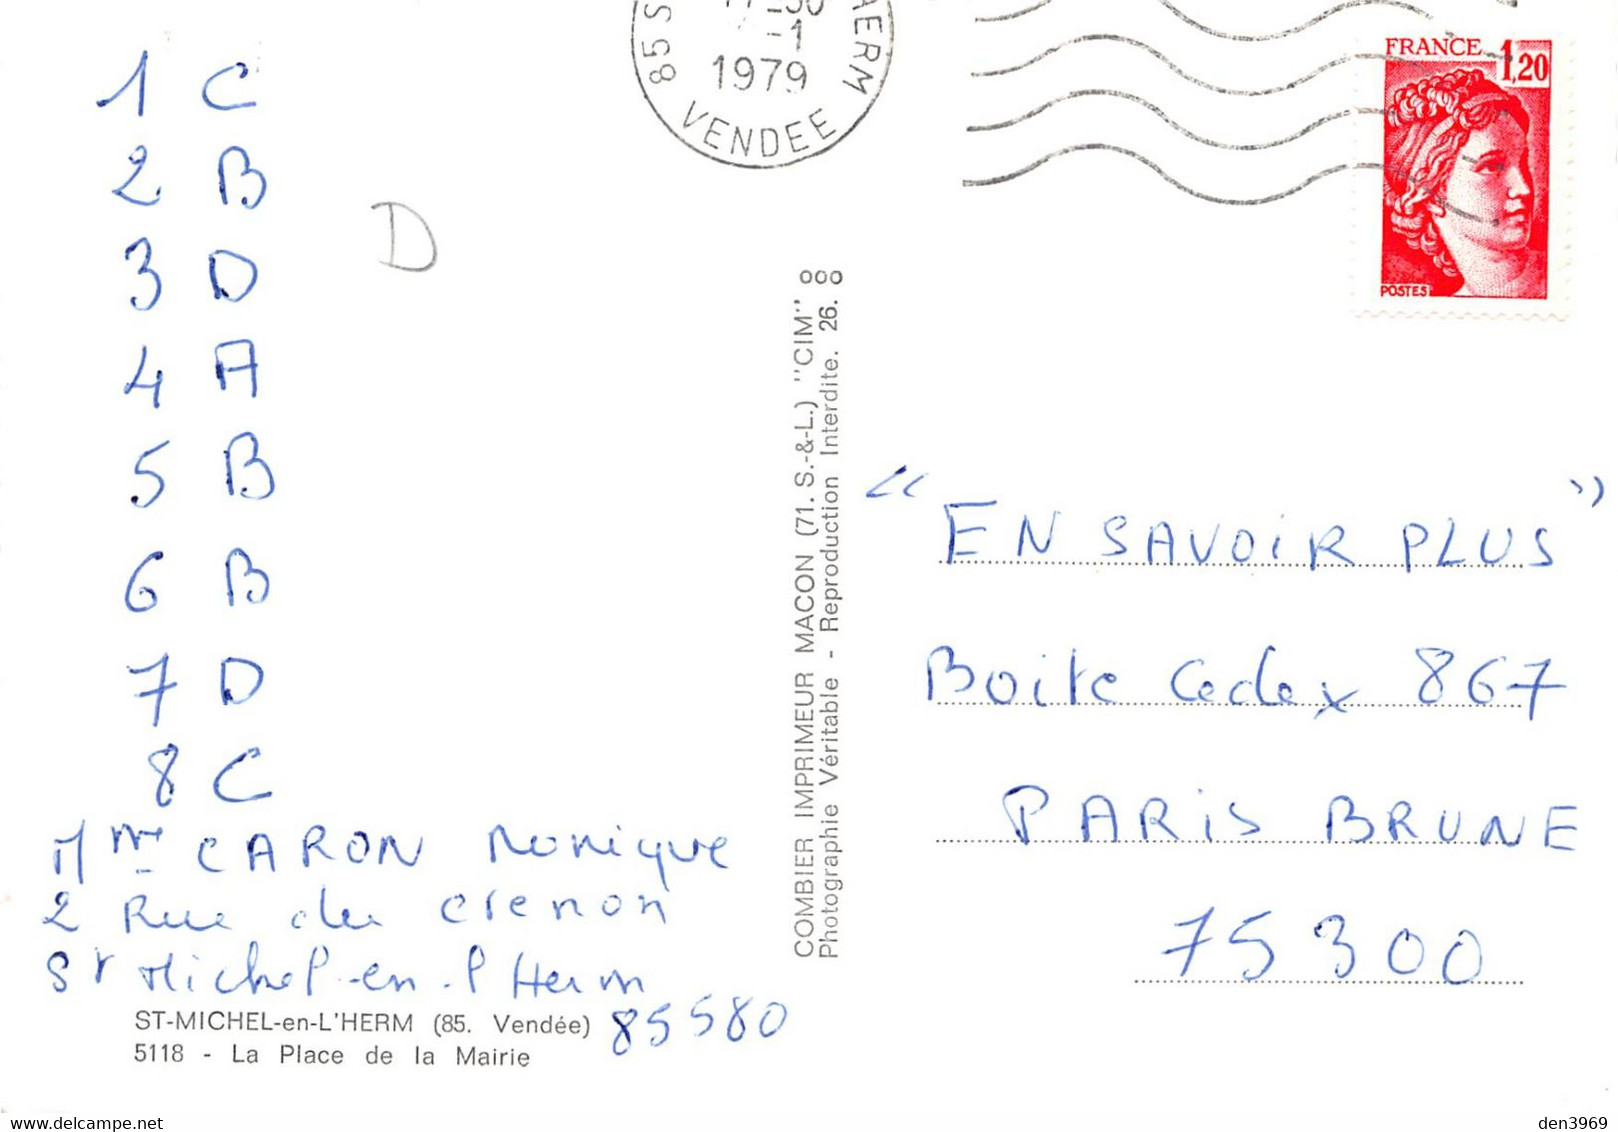 85 S
AERM
-1
1979
VENDEE
FRANCE 1,20
POSTES
1 C
2 B
3 D
4 A
5 B
6 B
7 D
8 C
D
Mme CARON Monique
2 Rue du crenon
St Michel-en-l'Herm
85580
ST-MICHEL-en-L'HERM (85. Vendée)
5118 - La Place de la Mairie
COMBIER IMPRIMEUR MACON (71. S.-&-L.) "CIM"
Photographie Véritable - Reproduction Interdite. 26.
"EN SAVOIR PLUS"
Boite Cedex 867
PARIS BRUNE
75300
den3969